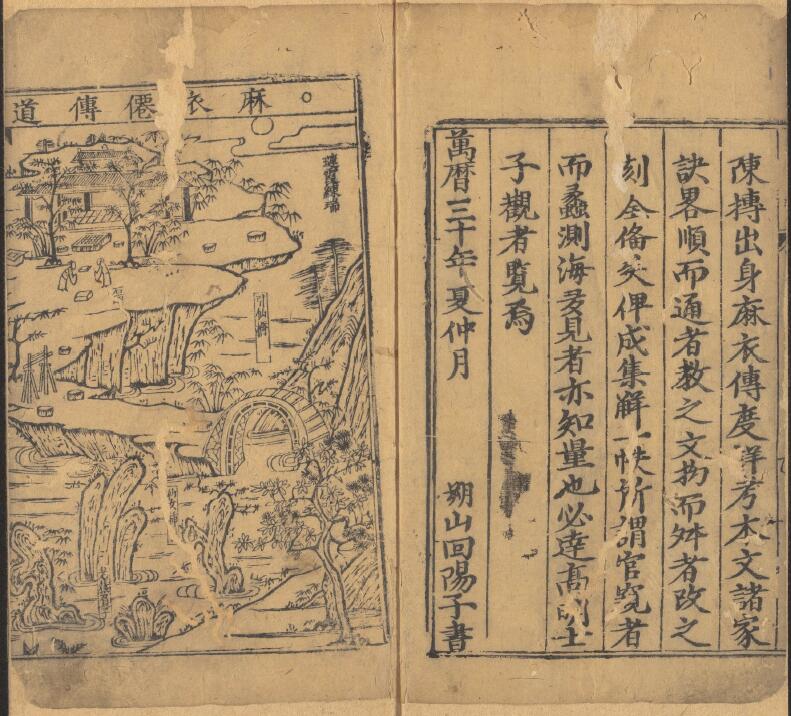 陳摶出身麻衣傳度詳考本文諸家
訣畧順而通者教之文拗而舛者改之
刻全俻矣俾成集解一帙所謂官窺者
而蠡測海多見者亦知量也必達髙明士
子觀者覽焉
萬曆三十年夏仲月 朔山回陽子書
麻衣僊傳道
引仙橋